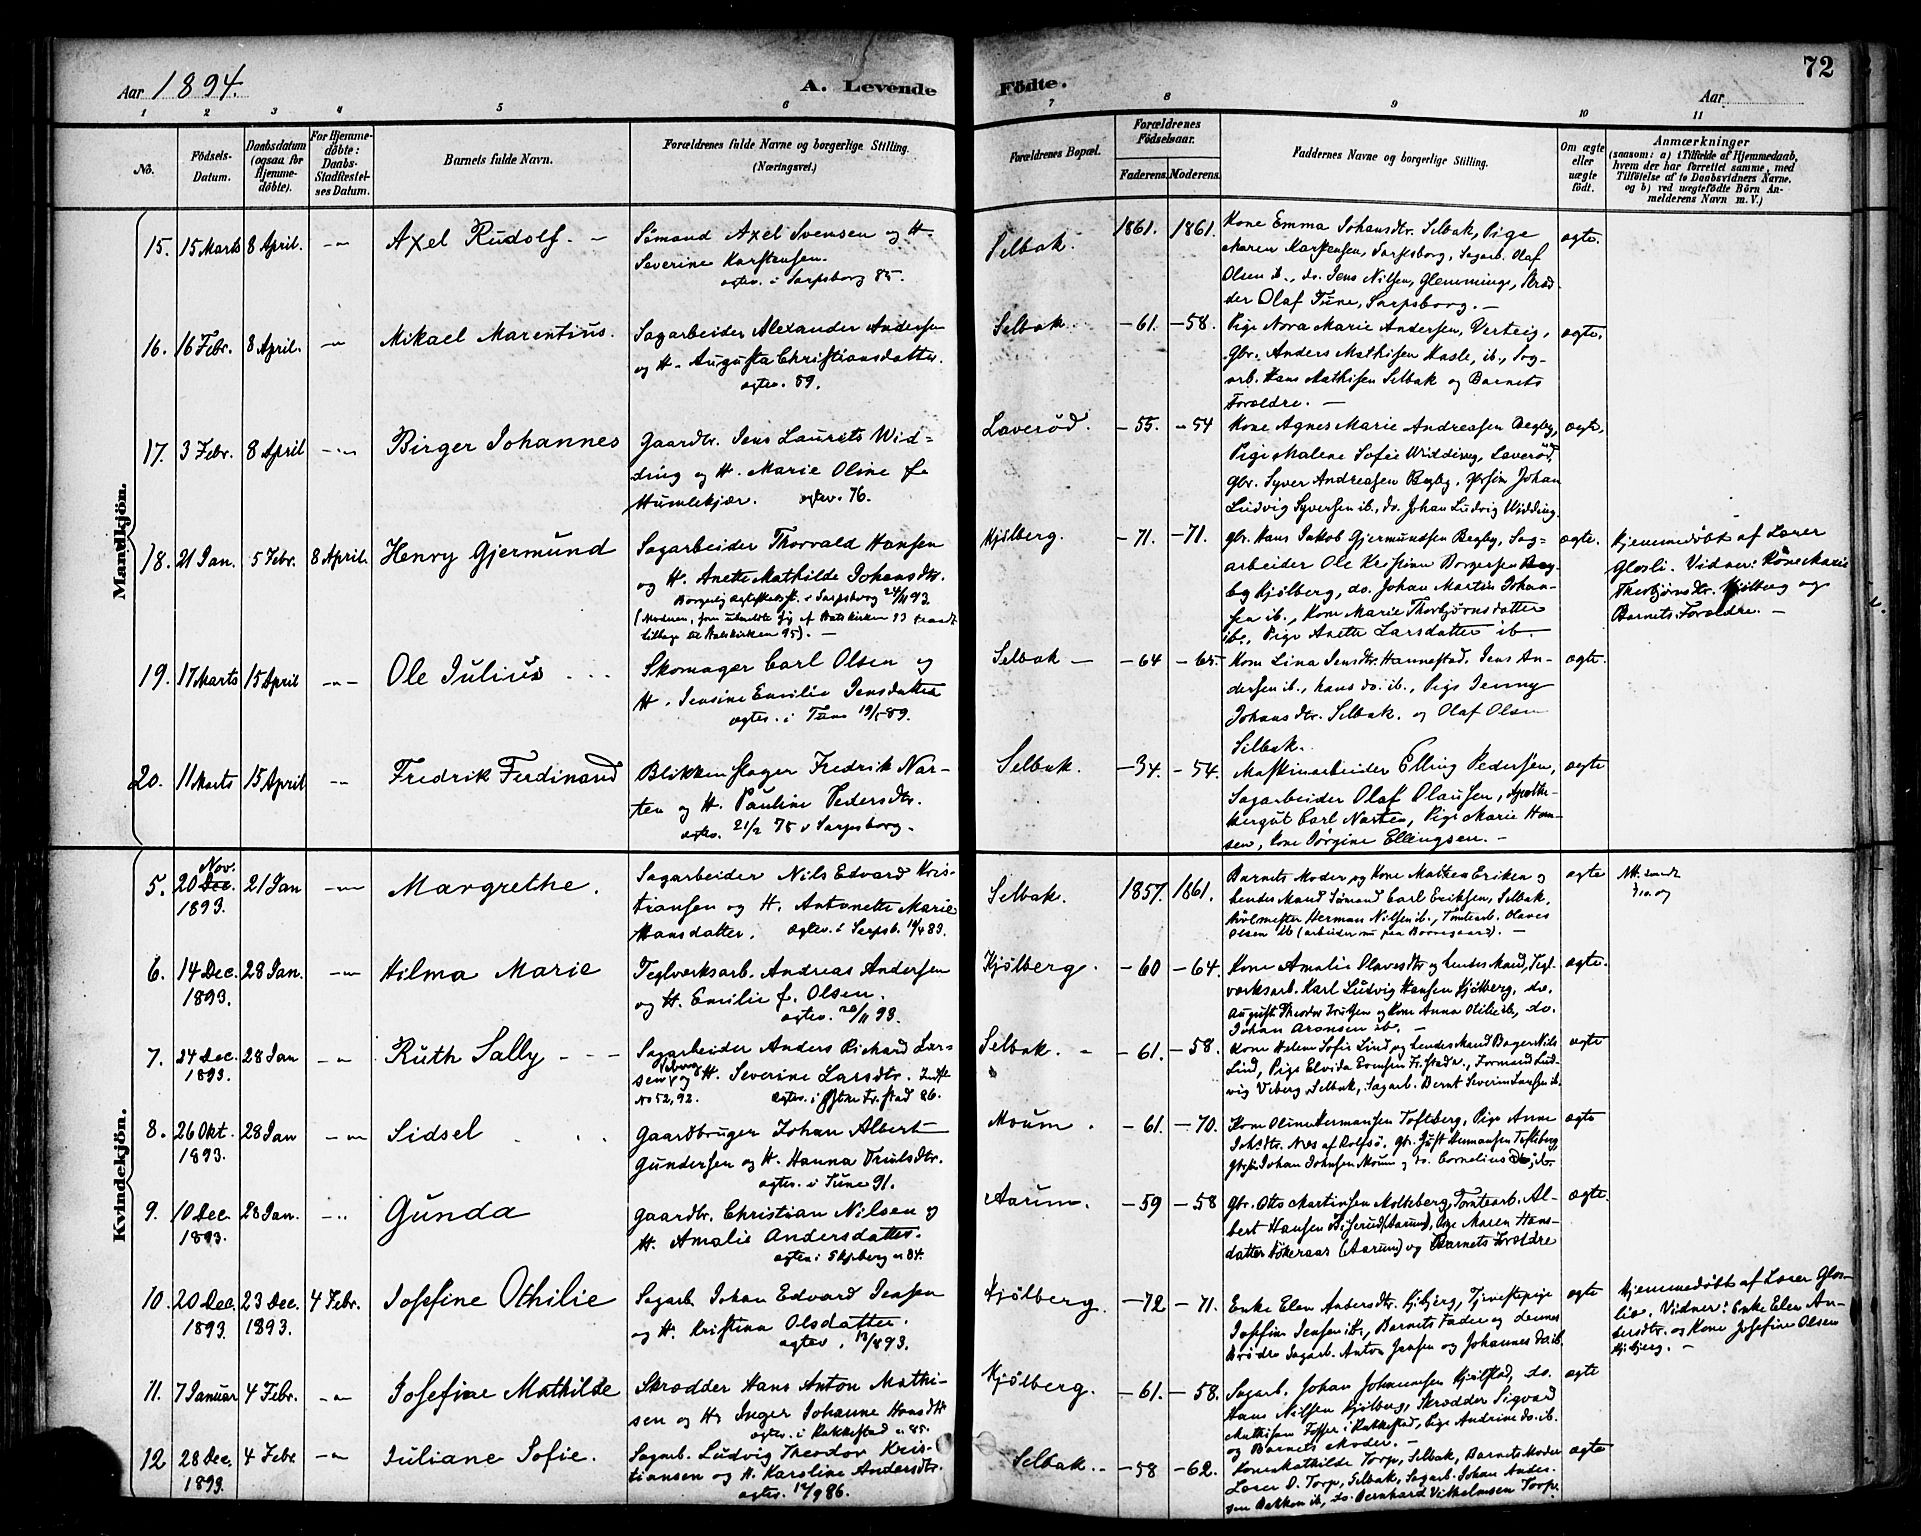 72
Aar 1894.
A. Levende Fødte.
Aar
1 2 3 4 5 6 7 8 9 10 11
No.
Födsels-Datum.
Daabsdatum (ogsaa for Hjemme-döbte).
For Hjemme-döbte: Daabs-Stadfæstel-ses Datum.
Barnets fulde Navn.
Forældrenes fulde Navne og borgerlige Stilling. (Næringsvei.)
Forældrenes Bopæl.
Forældrenes Fødselsaar.
Faderens. Moderens.
Faddernes Navne og borgerlige Stilling.
Om ægte eller uægte født.
Anmærkninger
(saasom: a) i Tilfælde af Hjemmedaab,
hvem der har forrettet samme, med
Tilføielse af to Daabsvidners Navne.
og b) ved uægtefödte Börn An-
melderens Navn m. V.)
Mandkjön.
15. 15 Marts 8 April. -"- Axel Rudolf. -
Sømand Axel Svensen og H.
Severine Karstensen.
ægtev. i Sarpsborg 85.
Selbak. 1861. 1861.
Kone Emma Johansdtr. Selbak, Pige
Maren Karstensen, Sarpsborg, Sagarb. Olaf
Olsen ib., do. Jens Nilsen, Glemminge, Brø-
der Olaf Tune, Sarpsborg. -
ægte.
16. 16 Febr. 8 April. -"- Mikael Marentius.
Sagarbeider Alexander Andersen
og H. Augusta Christiansdatter.
ægtev. 89.
Selbak. -61. -58.
Pige Nora Marie Andersen, Verteig,
Gbr. Anders Mathisen Hasle, ib., Sag-
arb. Hans Mathisen Selbak og Barnets
Forældre. -
ægte.
17. 3 Febr. 8 April -"- Birger Johannes
Gaardbr. Jens Laurits Wid-
ding og H. Marie Oline f.
Humlekjær. ægtev. 76.
Laverød. -55. -54
Kone Agnes Marie Andreasen Begby,
Pige Malene Sofie Widding, Laverød,
Gbr. Syver Andreasen Begby, Johan
Ludvig Syversen ib., do. Johan Ludvig Widding.
ægte.
18. 21 Jan. 5 Febr. 8 April. Henry Gjermund
Sagarbeider Thorvald Hansen
og H. Anette Mathilde Johansdtr.
Borgerlig Ægteskabst. i Sarpsborg 24/11 93.
(Moderen, som udmeldte sig af Statskirken 93 traadt
tilbage til Statskirken 95). -
Kjølberg. -71. -71.
Gbr. Hans Jakob Gjermundsen Begby, Sag-
arbeider Ole Kristian Borgersen
Kjølberg, do. Johan Martin Johan-
sen ib., Kone Marie Thorbjørnsdatter
ib., Pige Anette Larsdatter ib.
ægte.
Hjemmedøbt af Lærer
Glosli. Vidner: Kone Marie
Thorbjørnsdtr. Kjølberg og
Barnets Forældre. -
19. 17 Marts 15 April -"- Ole Julius
Skomager Carl Olsen og
H. Jensine Emilie Jensdatter
ægtev. i Tune 19/5 89.
Selbak - -64 -65.
Kone Lina Jensdtr. Hannestad, Jens An-
dersen ib., Hans do. ib., Pige Jenny
Johansdtr. Selbak. og Olaf Olsen
Selbak.
ægte.
20. 11 Marts 15 April -"- Fredrik Ferdinand
Blikkenslager Fredrik Nar-
ten og H. Pauline Pedersdtr.
ægtev. 21/2 75 i Sarpsborg.
Selbak. -34. -54.
Maskinarbeider Elling Pedersen,
Sagarbeider Olaf Olausen, Apothe-
kergut Carl Narten, Pige Marie Han-
sen, Kone Jørgine Ellingsen. -
ægte
Kvindekjön.
5. 20 Nov. Dec. 1893. 21 Jan -"- Margrethe.
Sagarbeider Nils Edvard Kris-
tiansen og H. Antonette Marie
Hansdatter. ægtev. i Sarpsb. 83.
Selbak. 1857. 1861.
Barnets Moder og Kone Mathea Eriksen og
hendes Mand Sømand Carl Eriksen, Selbak,
Herman Nilsen ib., Tomtearb. Olaves
Olsen ib (arbeider nu paa Borregaard). -
ægte
6. 14 Dec. 1893. 28 Jan. -"- Hilma Marie
Teglværksarb. Andreas Andersen
og H. Emilie f. Olsen.
ægtev. 93.
Kjølberg. -60 -64.
Kone Amalie Olavesdtr og hendes Mand, Tegl-
værksarb. Karl Ludvig Hansen Kjølberg, do.
August Theodor Knutsen og Kone Anna Otilie ib, do.
Johan Aronsen ib. -
ægte.
7. 24 Dec. 1893. 28 Jan -"- Ruth Sally - - -
Sagarbeider Anders Richard Lar-
sen Viberg og H. Severine Larsdtr. Indst.
No 52, 92. ægtev. i Østre Fr.stad 86.
Selbak. - -61. -58.
Kone Helene Sofie Lind og hendes Mand Bager Nils
Lind, Pige Elvida Evensen Fr.stad, Formand Lud-
vig Viberg, Selbak, Sagarb. Bernt Severin Larsen ib.
ægte
8. 26 Okt. 1893. 28 Jan -"- Sidsel
Gaardbruger Johan Albert
Gundersen og H. Hanna Trulsdtr.
ægtev. i Tune 91.
Moum. -61. -70.
Kone Oline Hermansen Tofteberg, Pige Anne
Johsdtr. Næs af Rolfsø, Gbr. Gust Hermansen Tofteberg,
Johan Johnsen Moum og do. Cornelius do. ib.
ægte
9. 10 Dec. 1893. 28 Jan. -"- Gunda
Gaardbr. Christian Nilsen og
H. Amalie Andersdatter.
ægtev. i Skjeberg 84.
Aarum. -59 -58
Gbr. Otto Martinsen Molteberg, Tomtearb. Al-
bert Hansen (Aarum), Pige Maren Hans-
datter (Aarum) og Barnets Forældre
ægte.
10. 20 Dec. 1893. 23 Dec. 1893. 4 Febr. Josefine Othilie
Sagarb. Johan Edvard Jensen
og H. Kristina Olsdatter.
ægtev. 13/8 93.
Kjølberg. -72 -71.
Enke Elen Andersdtr. Kjibjerg, Tjenestepige
Josefine Jensen ib., Barnets Fader og dennes
Brødre Sagarb. Anton Jensen og Johannes do. ib.
ægte
Hjemmedøbt af Lærer Glos-
lie. Vidner: Enke Elen An-
dersdtr. og Kone Josefine Olsen
Kjibjerg. -
11. 7 Januar 4 Febr. -"- Josefine Mathilde
Skrædder Hans Anton Mathi-
sen og H. Inger Johanne Hansdtr
ægtev. i Rakkestad 85.
Kjølberg. -61. -58.
Sagarb. Johan Johannesen Kjølstad, do.
Hans Nilsen Kjølberg, Skrædder Sigvard
Mathisen i Rakkestad, Pige Andrine do. ib.
og Barnets Moder. -
ægte
12 28 Dec. 1893. 4 Febr. -"- Juliane Sofie.
Sagarb. Ludvig Theodor Kris-
tiansen og H. Karoline Andersdtr.
ægtev. 86.
Selbak. - -58 -62.
Kone Mathilde Torp, Selbak, Barnets Moder
Lærer O. Torp, Selbak, Sagarb. Johan Ander-
sen Bakken ib, do. Bernhard Vilhelmsen Torp.
ægte